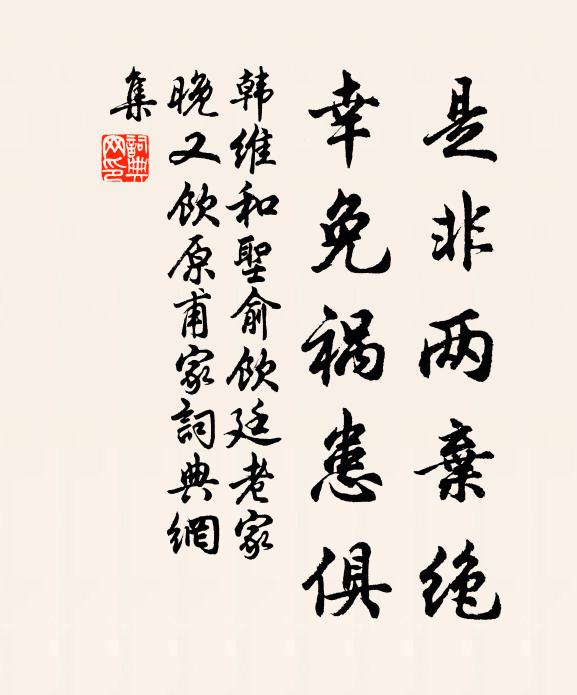 是非两弃绝
幸免祸患俱
韩维和聖俞饮廷老家
晚又饮原甫家詞典網
集
詞典网印